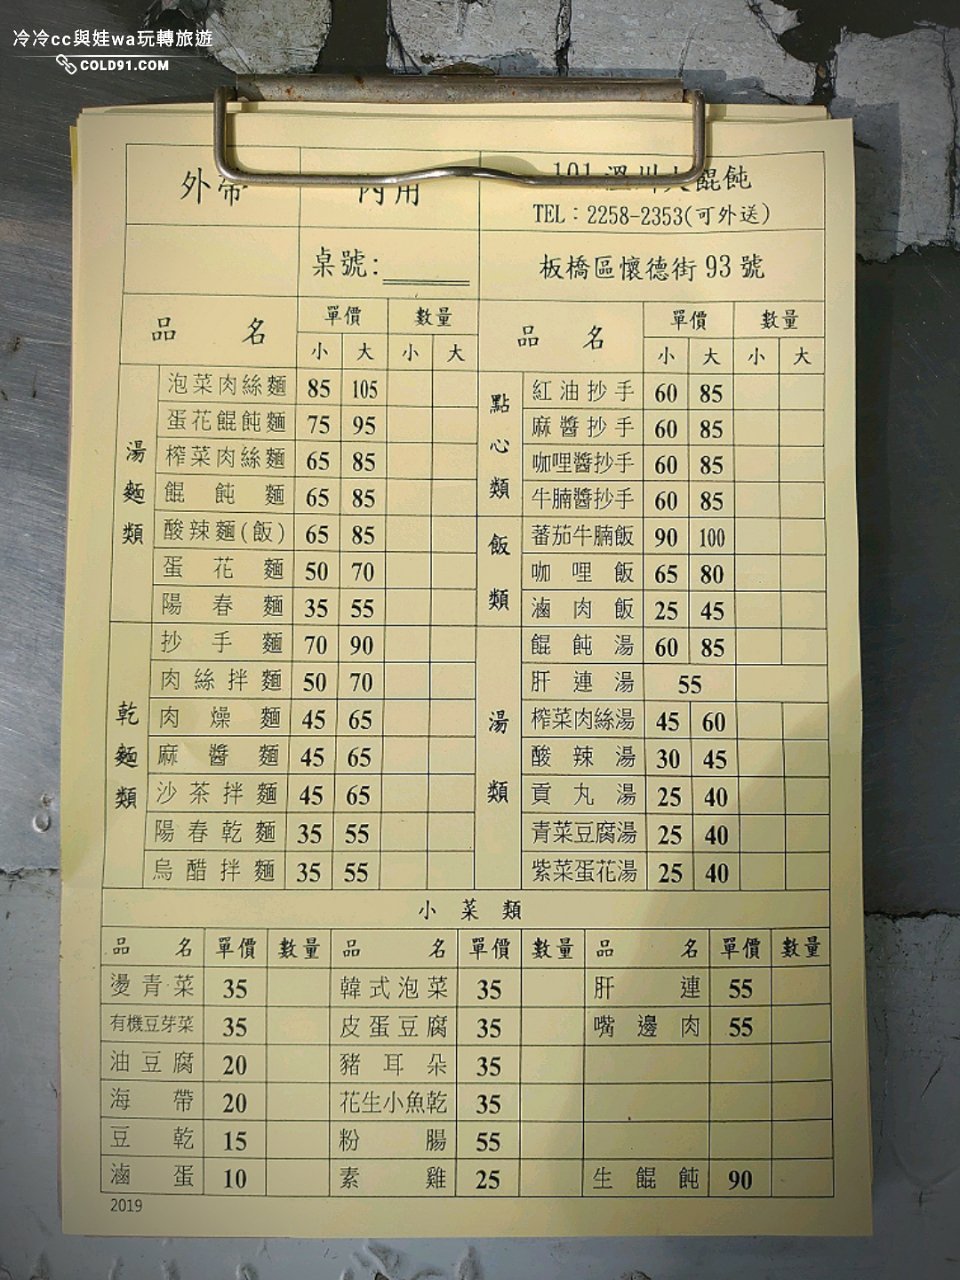 冷冷cc與娃wa玩轉旅遊
COLD91.COM
外帶 內用 101溫州大餛飩
TEL：2258-2353(可外送)
桌號: 板橋區懷德街 93 號
品名 單價 數量 品名 單價 數量
小 大 小 大 小 大 小 大
湯麵類
泡菜肉絲麵 85 105
蛋花餛飩麵 75 95
榨菜肉絲麵 65 85
餛飩麵 65 85
酸辣麵(飯) 65 85
蛋花麵 50 70
陽春麵 35 55
乾麵類
抄手麵 70 90
肉絲拌麵 50 70
肉燥麵 45 65
麻醬麵 45 65
沙茶拌麵 45 65
陽春乾麵 35 55
烏醋拌麵 35 55
點心類
紅油抄手 60 85
麻醬抄手 60 85
咖哩醬抄手 60 85
牛腩醬抄手 60 85
飯類
蕃茄牛腩飯 90 100
咖哩飯 65 80
滷肉飯 25 45
湯類
餛飩湯 60 85
肝連湯 55
榨菜肉絲湯 45 60
酸辣湯 30 45
貢丸湯 25 40
青菜豆腐湯 25 40
紫菜蛋花湯 25 40
小菜類
品名 單價 數量 品名 單價 數量 品名 單價 數量
燙青菜 35 韓式泡菜 35 肝連 55
有機豆芽菜 35 皮蛋豆腐 35 嘴邊肉 55
油豆腐 20 豬耳朵 35
海帶 20 花生小魚乾 35
豆乾 15 粉腸 55
滷蛋 10 素雞 25 生餛飩 90
2019